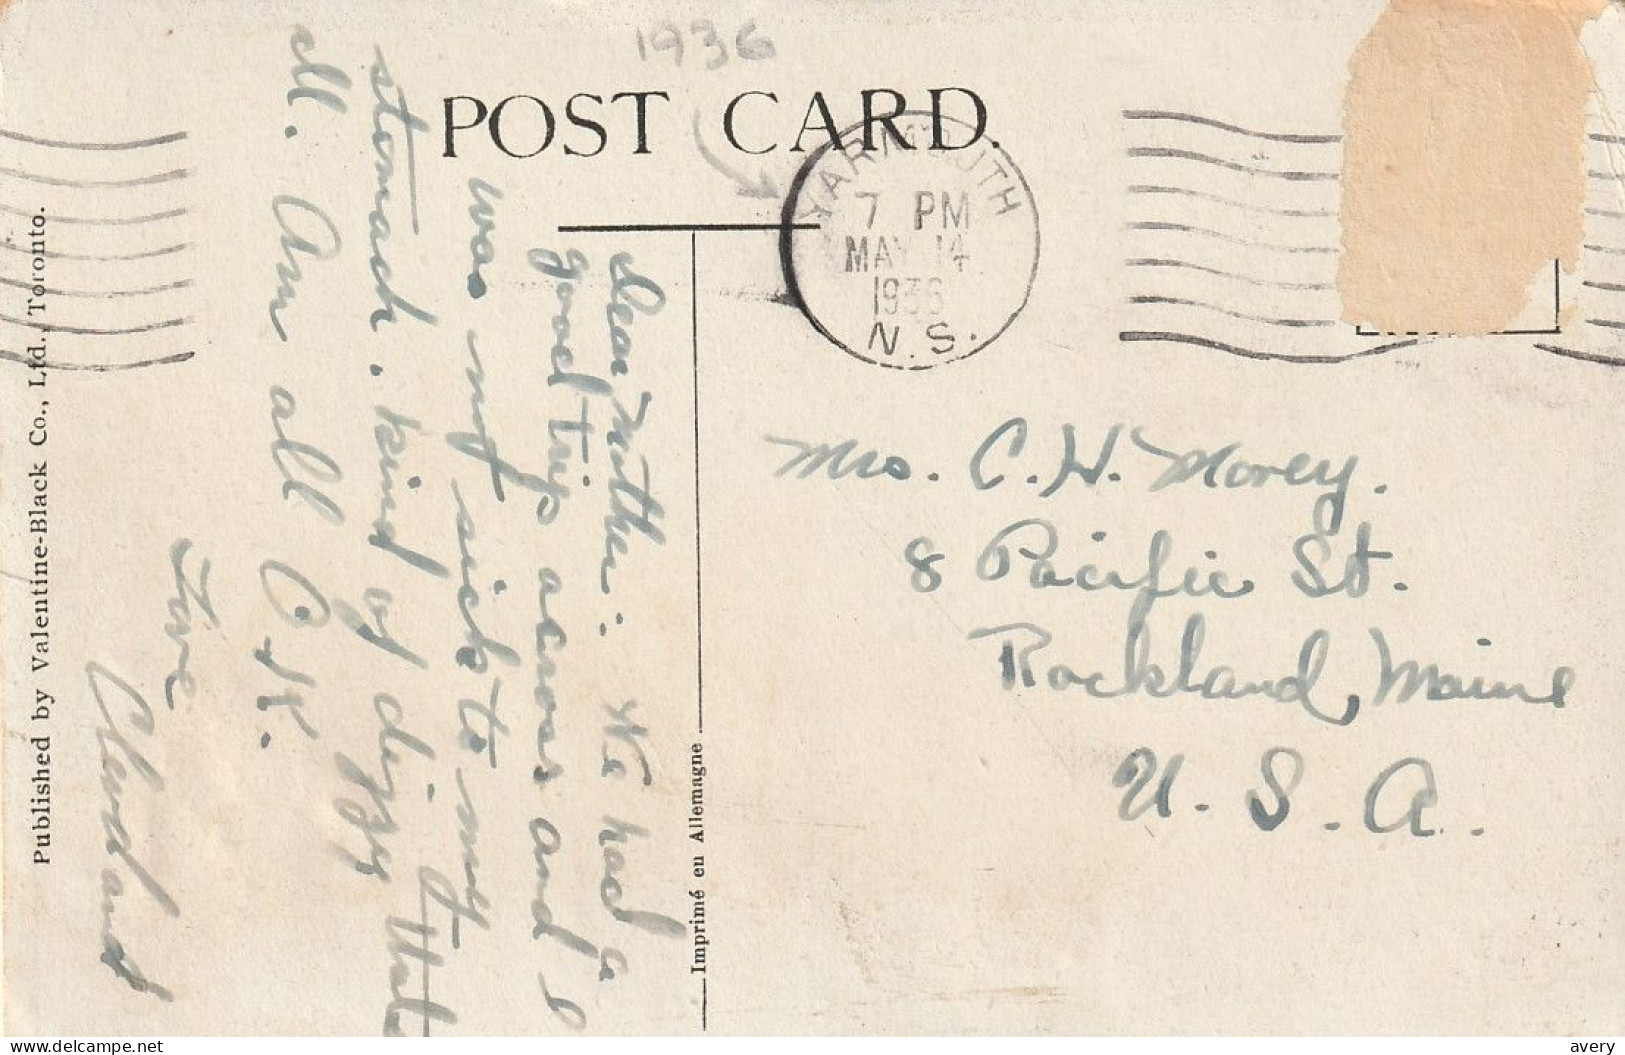 1936
POST CARD.
YARMOUTH
7 PM
MAY 14
1936
N.S.
Dear Mother: We had a
good trip across and I
was my sick to my
stomach. Kind of dizzy that
all. Am all O.K.
Love
Cleveland
Mrs. C. H. Morey.
8 Pacific St.
Rockland, Maine
U. S. A.
Imprimé en Allemagne
Published by Valentine-Black Co., Ltd., Toronto.
delcampe.net
avery